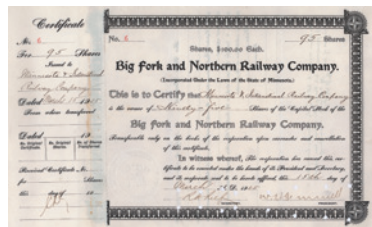 Certificate
No.
For 95 Shares
Issued to
Minnesota & International
Railway Company
Dated March 15 1905
From whom transferred
Dated 19
No. Original Certificate
No. Original Shares
No. of Shares Transferred
Received Certificate No.
for Shares
this day of 19
No. 95 Shares
Shares, $100.00 Each.
Big Fork and Northern Railway Company.
(Incorporated Under the Laws of the State of Minnesota.)
This is to Certify that Minnesota & International Railway Company
is the owner of Ninety-five Shares of the Capital Stock of the
Big Fork and Northern Railway Company.
Transferable only on the books of the corporation upon surrender and cancellation
of this certificate.
In witness whereof, The corporation has caused this cer-
tificate to be executed under the hands of its President and Secretary,
and its corporate seal to be hereto affixed, this 15th day of
March A.D. 1905